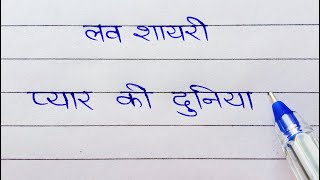 लव शायरी
प्यार की दुनिया